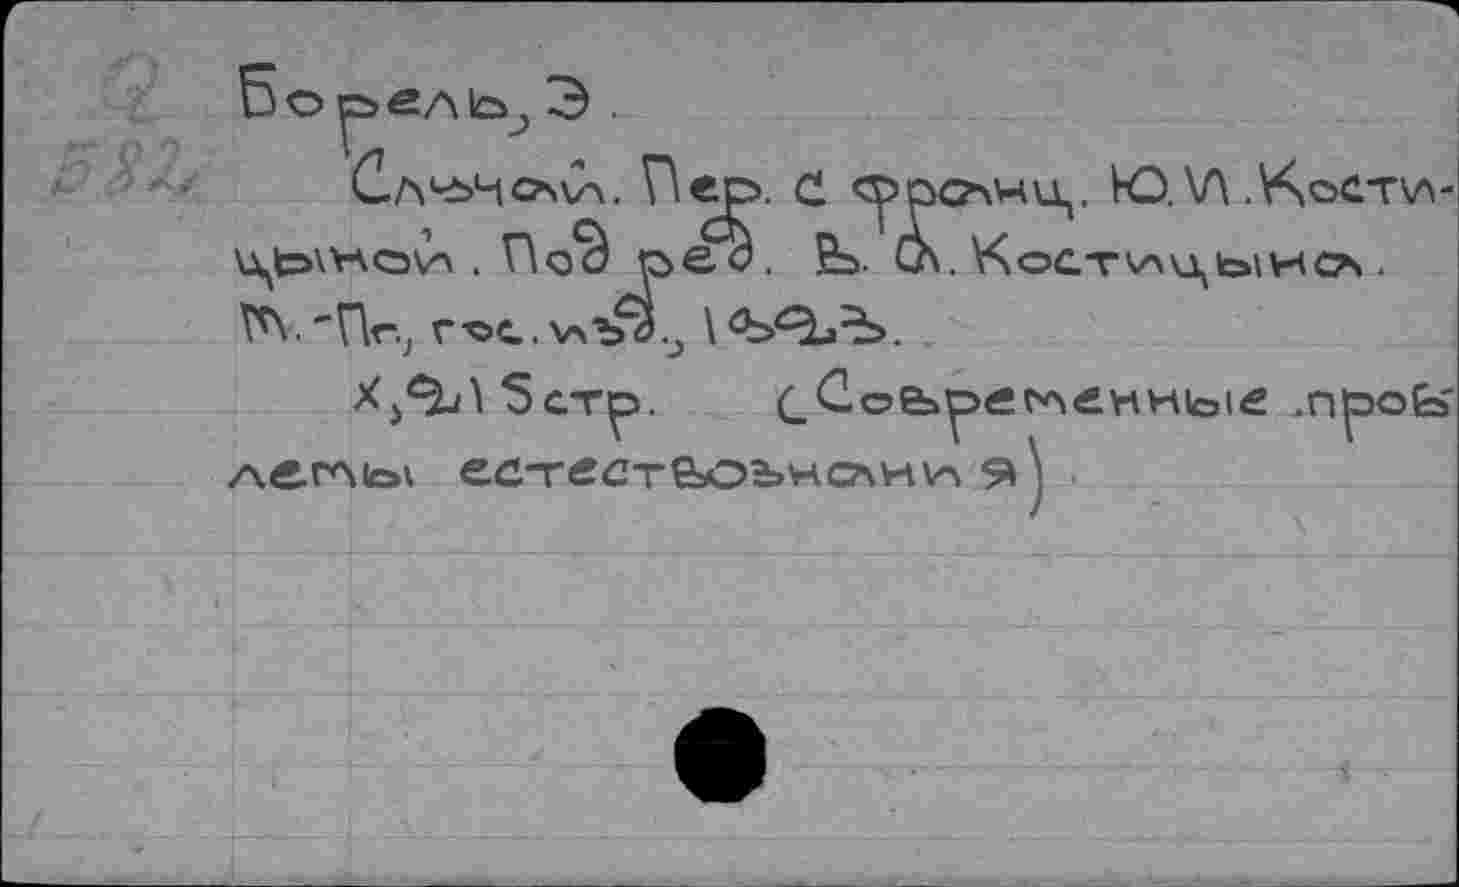 Борель, Э.
582. Случай. Пер. с франц. Ю.И.Кости-
цыной. Под ред. В. А. Костицына.
М.-Пг., гос. изд., 1923.
X, 215 стр. (Современные проб-
лемы естествознания)